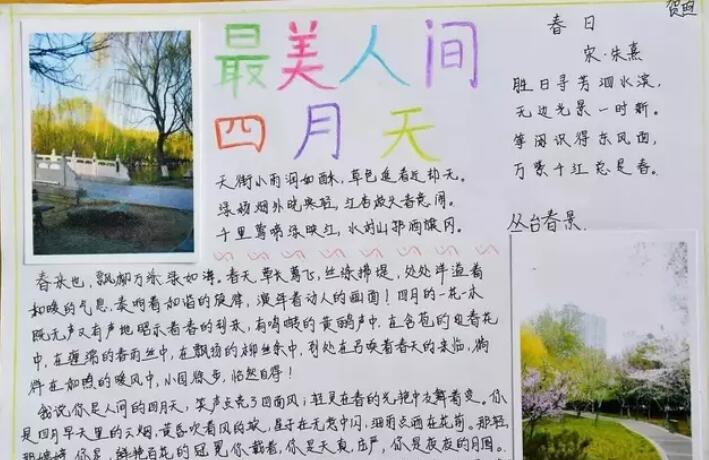 贺煦
最美人间
四月天
春日
宋·朱熹
胜日寻芳泗水滨,
无边光景一时新。
等闲识得东风面,
万紫千红总是春。
天街小雨润如酥,草色遥看近却无。
绿杨烟外晓寒轻,红杏枝头春意闹。
千里莺啼绿映红,水村山郭酒旗风。
丛台春景
春来也,飘柳万条绿如海。春天,草长莺飞,丝绦拂堤,处处洋溢着
和暖的气息,奏响着和谐的旋律,漫卷着动人的画面!四月的一花一木
既无声又有声地昭示着春的到来,有鸣啭的黄鹂声中,在含苞的迎春花
中,在缠绵的春雨丝中,在飘扬的柳丝条中,到处在召唤着春天的来临,徜
徉在和煦的暖风中,小园徐步,怡然自得!
我说你是人间的四月天,笑声点亮了四面风;轻灵在春的光艳中交舞着变。你
是四月早天里的云烟,黄昏吹着风的软,星子在无意中闪,细雨点洒在花前。那轻,
那娉婷,你是,鲜艳百花的冠冕你戴着,你是天真,庄严,你是夜夜的月圆。